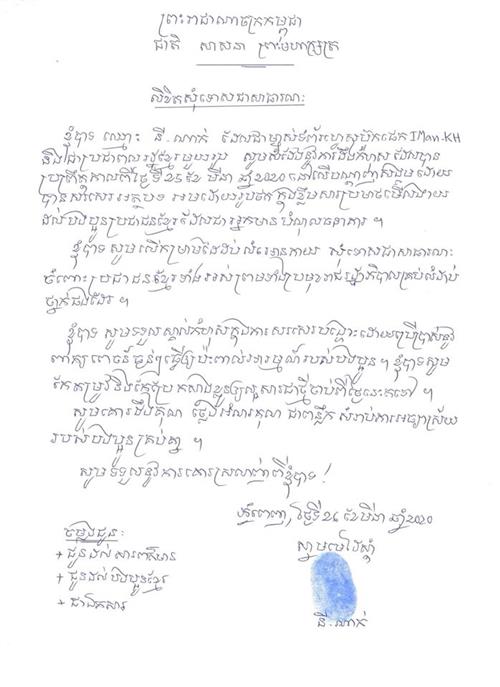 ព្រះរាជាណាចក្រកម្ពុជា
ជាតិ សាសនា ព្រះមហាក្សត្រ
លិខិតសុំទោសជាសាធារណៈ
ខ្ញុំបាទ ឈ្មោះ នី.ណាក់ ដែលជាម្ចាស់ទំព័រហ្វេសប៊ុកផេក IMan-KH
និងជាប្រជាពលរដ្ឋខ្មែរមួយរូប សូមសំដែងនូវការដឹងកំហុស ដែលបាន
ប្រព្រឹត្តកាលពីថ្ងៃទី 25 ខែ មីនា ឆ្នាំ 2020 នៅលើបណ្តាញសង្គម ដោយ
បានសរសេរអត្ថបទ អមដោយរូបថត ក្នុងខ្លឹមសារប្រមាថមើលងាយ
ដល់បងប្អូនប្រជាជនខ្មែរដែលជាអ្នកមានបំណុលធនាគារ ។
ខ្ញុំបាទ សូមលើកម្រាមដៃដប់លំអោនកាយ សុំទោសជាសាធារណៈ
ចំពោះប្រជាជនខ្មែរទាំងអស់ព្រមទាំងប្រមុខរាជរដ្ឋាភិបាលគ្រប់លំដាប់
ថ្នាក់ផងដែរ ។
ខ្ញុំបាទ សូមទទួលស្គាល់កំហុសក្នុងការសរសេរបង្ហោះដោយប្រើប្រាស់នូវ
ពាក្យពេចន៍ធ្ងន់ៗធ្វើឲ្យប៉ះពាល់អារម្មណ៍របស់បងប្អូន ។ ខ្ញុំបាទសូម
កែតម្រូវនិងកែប្រែ កសាងខ្លួនឲ្យល្អសារជាថ្មីចាប់ពីថ្ងៃនេះតទៅ ។
សូមគោរពដឹងគុណ ថ្លែងអំណរគុណ ជាពន្លឹក សំរាប់ការអធ្យាស្រ័យ
របស់បងប្អូនគ្រប់គ្នា ។
សូមទទួលនូវការគោរពស្រលាញ់ពីខ្ញុំបាទ !
ភ្នំពេញ, ថ្ងៃទី 26 ខែមីនា ឆ្នាំ 2020
ស្នាមមេដៃស្តាំ
ចម្លងជូន:
+ ជូនដល់ សារព័ត៌មាន
+ ជូនដល់ បងប្អូនខ្មែរ
+ ជាឯកសារ
នី.ណាក់